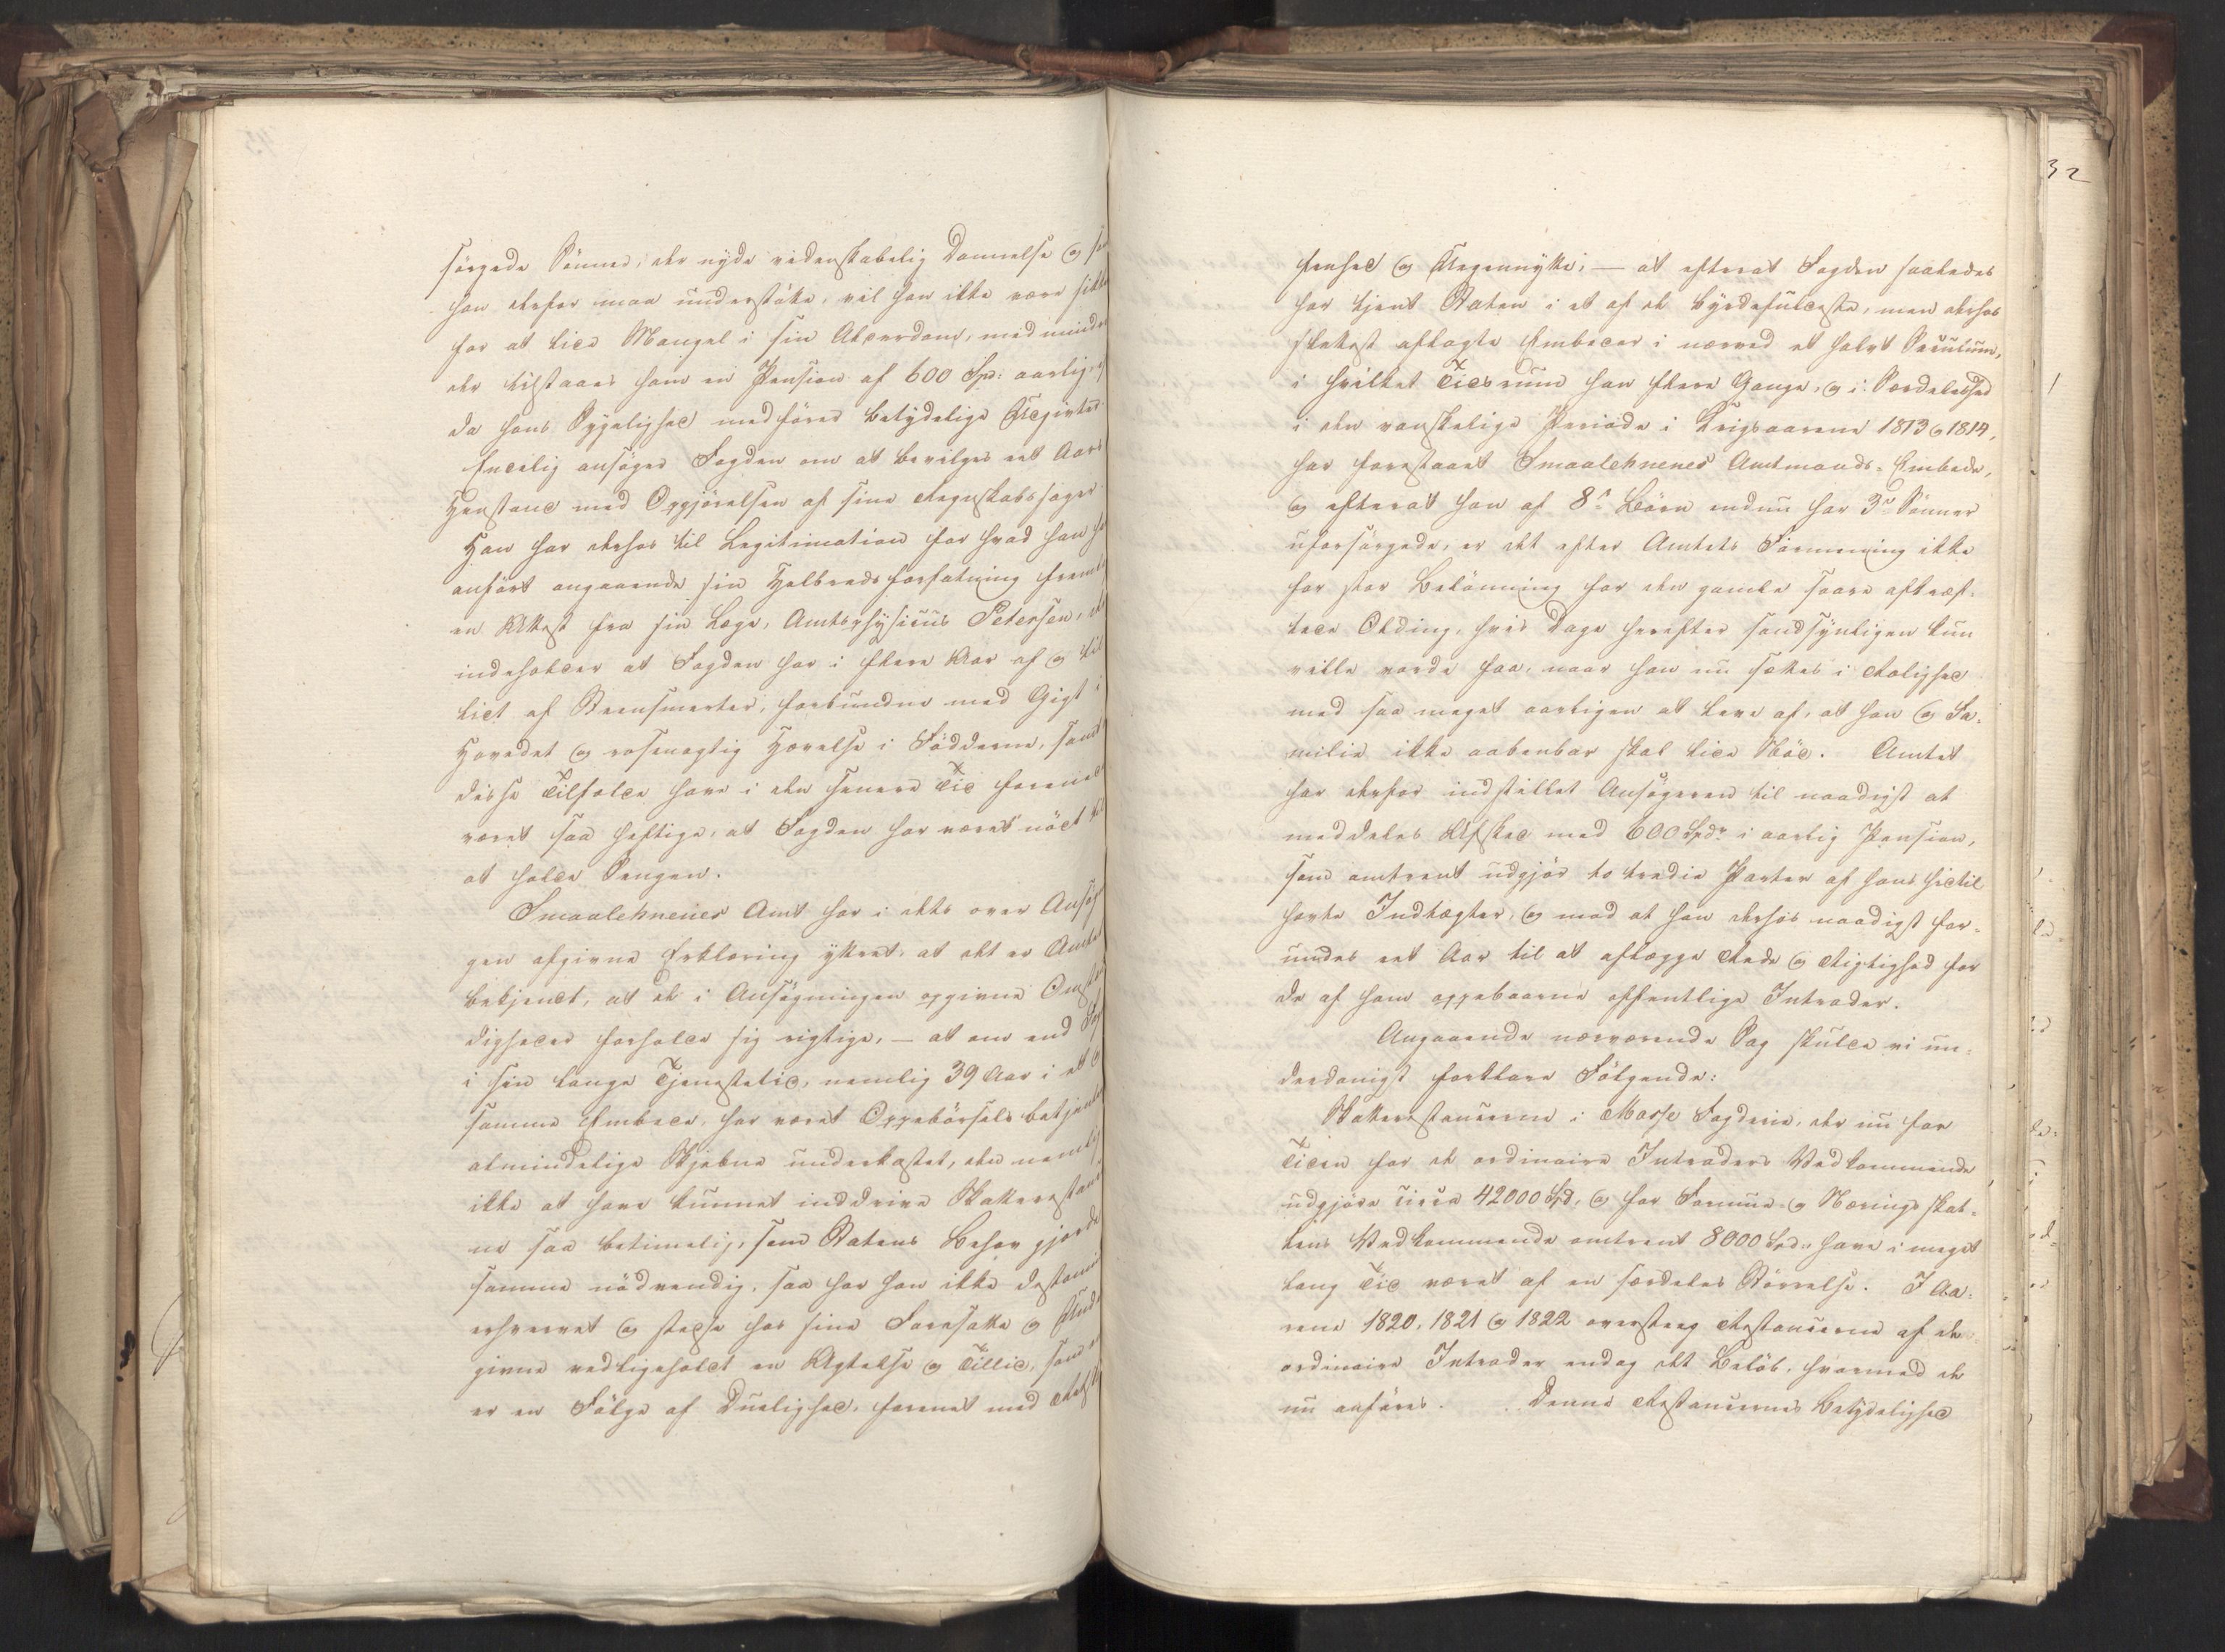 sörgede Sönner, der nyde videnskabelig Dannelse og som
han derfor maa understötte, vil han ikke være sikker
for at lide Mangel i sin Alderdom, med mindre
der tilstaaes ham en Pension af 600 Spd: aarlig,
da hans Sygelighed medförer betydelige Udgivter.
Endelig ansöger Fogden om at bevilges eet Aars
Henstand med Opgjörelsen af sine Regnskabssager.
Han har derhos til Legitimation for hvad han
anfört angaaende sin Helbredsforfatning
en Attest fra sin Læge, Amtsphysicus Petersen,
indeholder at Fogden har i flere Aar af og til
lidt af Steensmerter, forbundne med Gigt i
Hovedet og rosenagtig Hævelse i Födderne, samt
disse Tilfælde have i den senere Tid forenede
været saa heftige, at Fogden har været nödt til
at holde Sengen.
Smaalehnenes Amt har i dets over
gen afgivne Erklæring yttret, at det er Amtet
bekjendt, at de i Ansögningen opgivne
digheder forholde sig rigtige, — at om end
i sin lange Tjenestetid, nemlig 39 Aar i et og
samme Embede, har været Oppebörsels betjentes
almindelige Skjebne underkastet, den nemlig
ikke at have kunnet inddrive
ne saa betimelig, som Statens Behov gjorde
samme nödvendig, saa har han ikke
erhvervet og stedse hos sine Foresatte og
givne vedligeholdt en Agtelse og Tillid, som
er en Fölge af Duelighed, forenet med
32
fenhed og Uegennytte; — at efterat Fogden saaledes
har tjent Staten i et af de byrdefuldeste, men derhos
slettest aflagte Embeder i nærved et halvt Seculum,
i hvilket Tidsrum han flere Gange, og i Særdeleshed
i den vanskelige Periode i Krigsaarene 1813 og 1814,
har forestaaet Smaalehnenes Amtmands-Embede,
og efterat han af 8te Börn endnu har 3de Sönner
uforsörgede, er det efter Amtets Formening ikke
for stor Belönning for den gamle saare aftræl-
lede Olding, hvis Dage herefter sandsynligen kun
ville vorde faa, naar han nu sættes i Rolighed
med saa meget aarligen at leve af, at han og Fa-
milie ikke aabenbar skal lide Nöd. Amtet
har derfor indstillet Ansögeren til naadigst at
meddeles Afsked med 600 Spdr i aarlig Pension,
som omtrent udgjör to tredie Parter af hans hidtil
havte Indtægter, og med at han derhos naadigst for-
undes eet Aar til at aflægge Rede og Rigtighed for
de af ham oppebaarne offentlige Intrader.
Angaaende nærværende Sag skulde vi un-
derdanigst forklare Fölgende:
Skatterestancerne i Mosse Fogderie, der nu for
Tiden for de ordinaire Intraders Vedkommende
udgjöre circa 42000 Spd, og for Formue- og Nærings skat-
tens Vedkommende omtrent 8000 Spd: have i meget
lang Tid været af en særdeles Störrelse. I Aa-
rene 1820, 1821 og 1822 oversteeg Restancerne af de
ordinaire Intrader endog det Belöb, hvormed de
nu anföres. Denne Restancernes Betydelighed